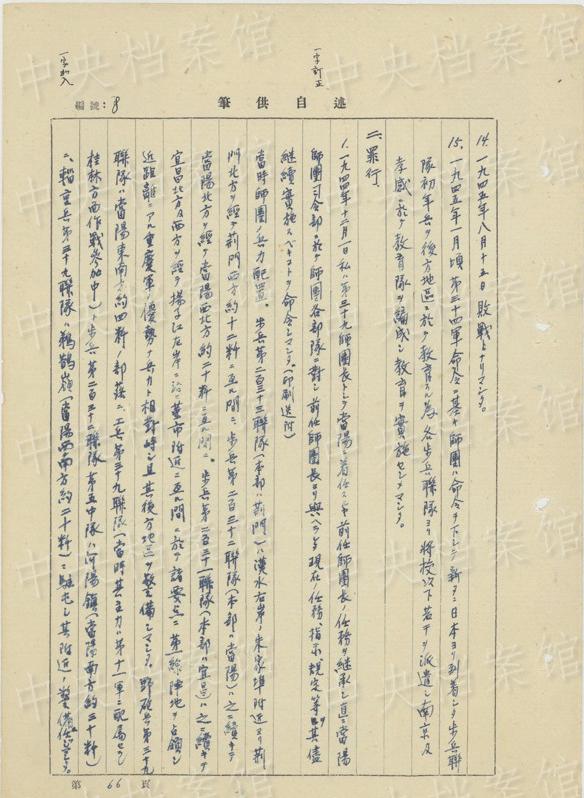 述自供筆
編號：8
一字訂正
一字加入
14. 一九四五年八月十五日敗戦トナリマシタ。
15. 一九四五年一月頃第三十四軍命令ニ基キ師團ハ命令ヲ下シテ新タニ日本ヨリ到着シタ歩兵聯
隊初年兵ヲ後方地區ニ於テ教育スル為各歩兵聯隊ヨリ将校以下若干ヲ派遣シ南京及
孝感ニ於テ教育隊ヲ編成シ教育ヲ實施セシメマシタ。
二、罪行、
1. 一九四四年十二月一日私ハ第三十九師團長トシテ當陽ニ着任スルヤ前任師團長ノ任務ヲ継承シ直ニ當陽
師團司令部ニ於テ師團各部隊ニ對シ前任師團長ヨリ與ヘラレタ現在ノ任務指示規定等ヲ其儘
継續實施スベキコトヲ命令シマシタ。（印刷送付）
當時師團ノ兵力配置、歩兵第二百三十三聯隊（本部ハ荊門）ハ漢水右岸ノ朱家埠附近ヨリ荊
門北方ヲ經テ荊門西方約十二粁ニ亘ル間ニ、歩兵第二百三十二聯隊（本部ハ當陽）ハ之ニ續キテ
當陽北方ヲ經テ當陽西北方約二十粁ニ亘ル間ニ、歩兵第二百三十一聯隊（本部ハ宜昌）ハ之ニ續キテ
宜昌北方及西方ヲ經テ揚子江左岸ニ沿ヒ董市附近ニ亘ル間ニ於テ諸要点ニ第一線陣地ヲ占領シ
近距離ニアル重慶軍ノ優勢ナ兵力ト相對峙シ且其後方地區ヲ警備シマシタ。野砲兵第三十九
聯隊ハ當陽東南方約四粁ノ部落ニ、工兵第三十九聯隊（當時其主力ハ第十一軍ニ配属セラレ
桂林方面作戦参加中）ト歩兵第二百三十二聯隊第五中隊ハ河陽鎮（當陽南方約三十粁）
ニ、輜重兵第三十九聯隊ハ鴉鵲嶺（當陽西南方約二十粁）ニ駐屯シ其附近ノ警備ニ任ジマシタ。
第 66 頁
中央档案馆